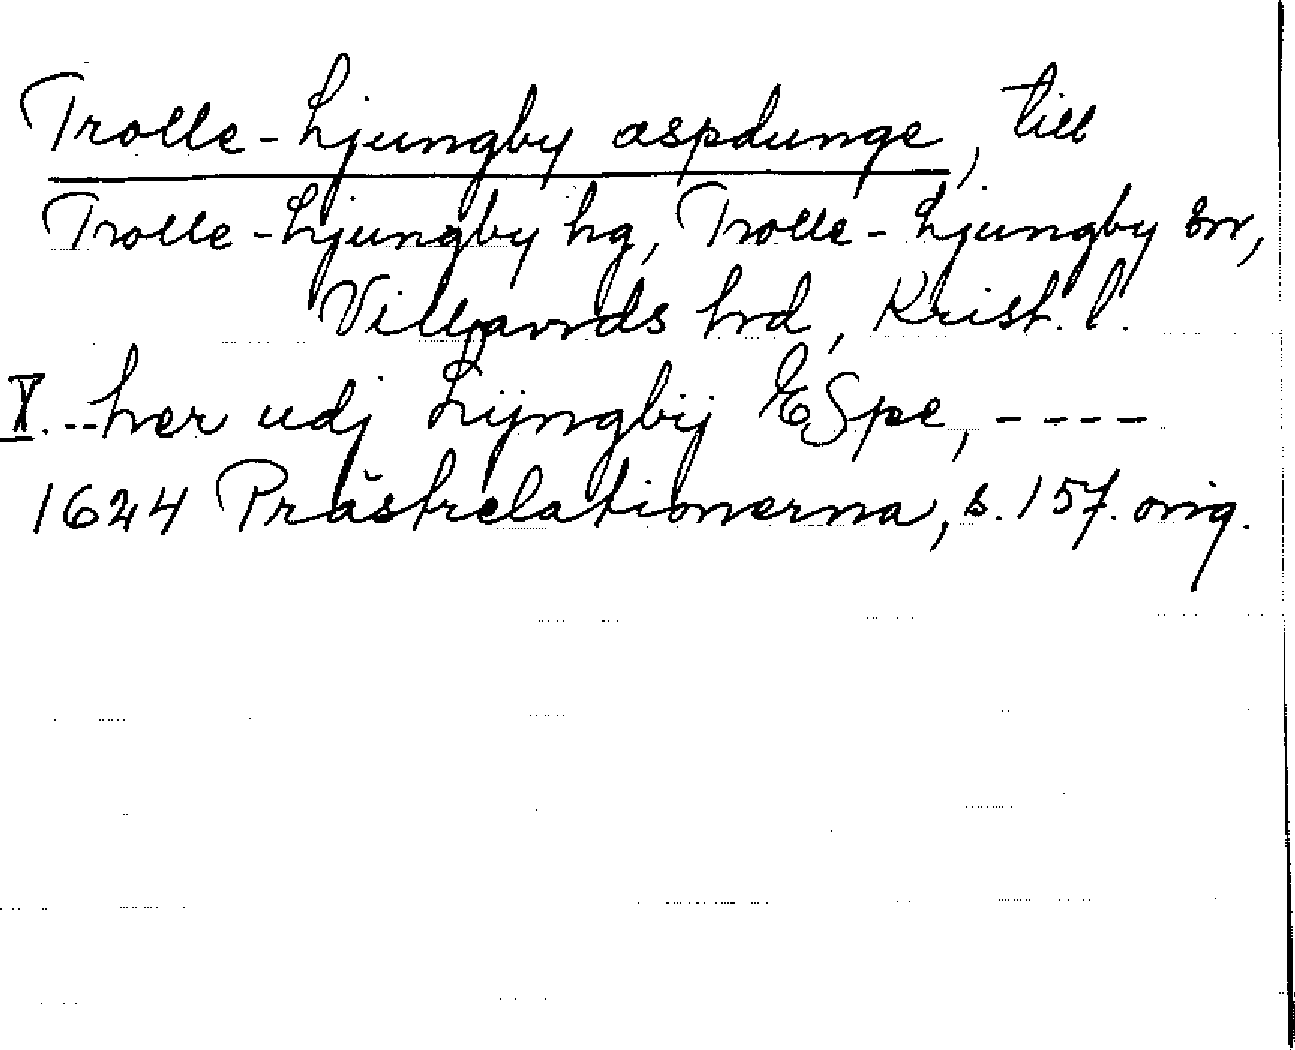 Trolle-Ljungby aspdunge, till
Trolle-Ljungby hg, Trolle-Ljungby sn,
Villands hrd, Krist. l.
X. --her udj Lijngbij ESpe, ----
1624 Prästrelationerna, s. 157. orig.